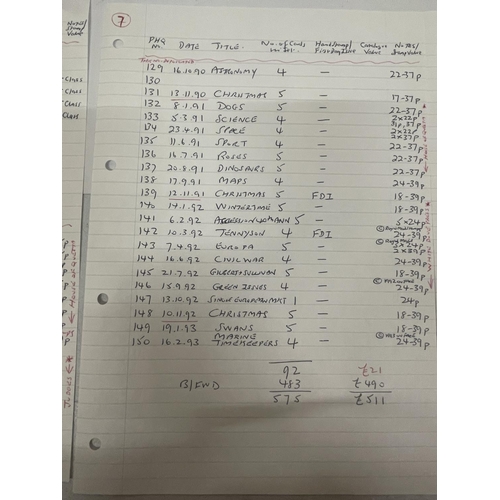 7
PHQ No. DATE TITLE. No. of Cards in Set. Handstamp/ First Day Issue Catalogue Value Notes/ Stamp Value
129 16.10.90 ASTRONOMY 4 — 22-37p
130
131 13.11.90 CHRISTMAS 5 — 17-37p
132 8.1.91 DOGS 5 — 22-37p
133 5.3.91 SCIENCE 4 — 2x22p
134 23.4.91 SPACE 4 — 2x22p 2x37p
135 11.6.91 SPORT 4 — 22-37p
136 16.7.91 ROSES 5 — 22-37p
137 20.8.91 DINOSAURS 5 — 22-37p
138 17.9.91 MAPS 4 — 24-39p
139 12.11.91 CHRISTMAS 5 FDI 18-39p
140 14.1.92 WINTERTIME 5 — 18-39p
141 6.2.92 ACCESSION 40th ANN 5 — 5x24p
142 10.3.92 TENNYSON 4 FDI 24-39p
143 7.4.92 EUROPA 5 —
144 16.6.92 CIVIL WAR 4 — 24-39p
145 21.7.92 GILBERT & SULLIVAN 5 — 18-39p
146 15.9.92 GREEN ISSUES 4 — 24-39p
147 13.10.92 SINGLE EUROPEAN MKT 1 — 24p
148 10.11.92 CHRISTMAS 5 — 18-39p
149 19.1.93 SWANS 5 — 18-39p
150 16.2.93 MARINE TIMEKEEPERS 4 — 24-39p
92 £21
B/FWD 483 £490
575 £511